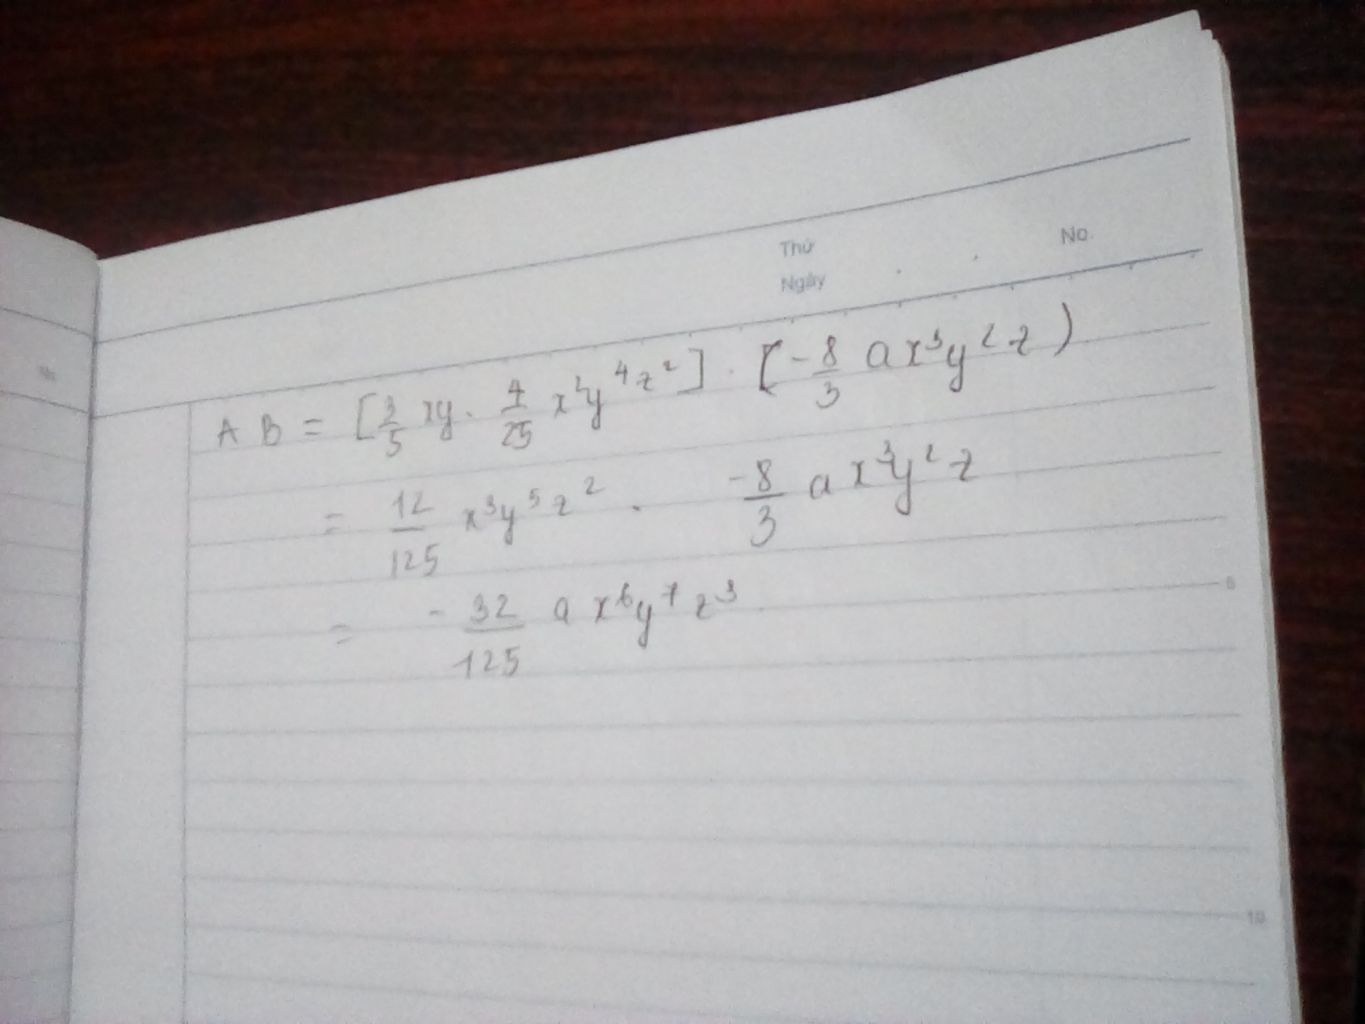 Thứ
No.
Ngày
A B = [3/5 xy . 4/25 x²y⁴z²] . [-8/3 ax³y²z)
= 12/125 x³y⁵z² . -8/3 ax³y²z
= -32/125 ax⁶y⁷z³
5
10